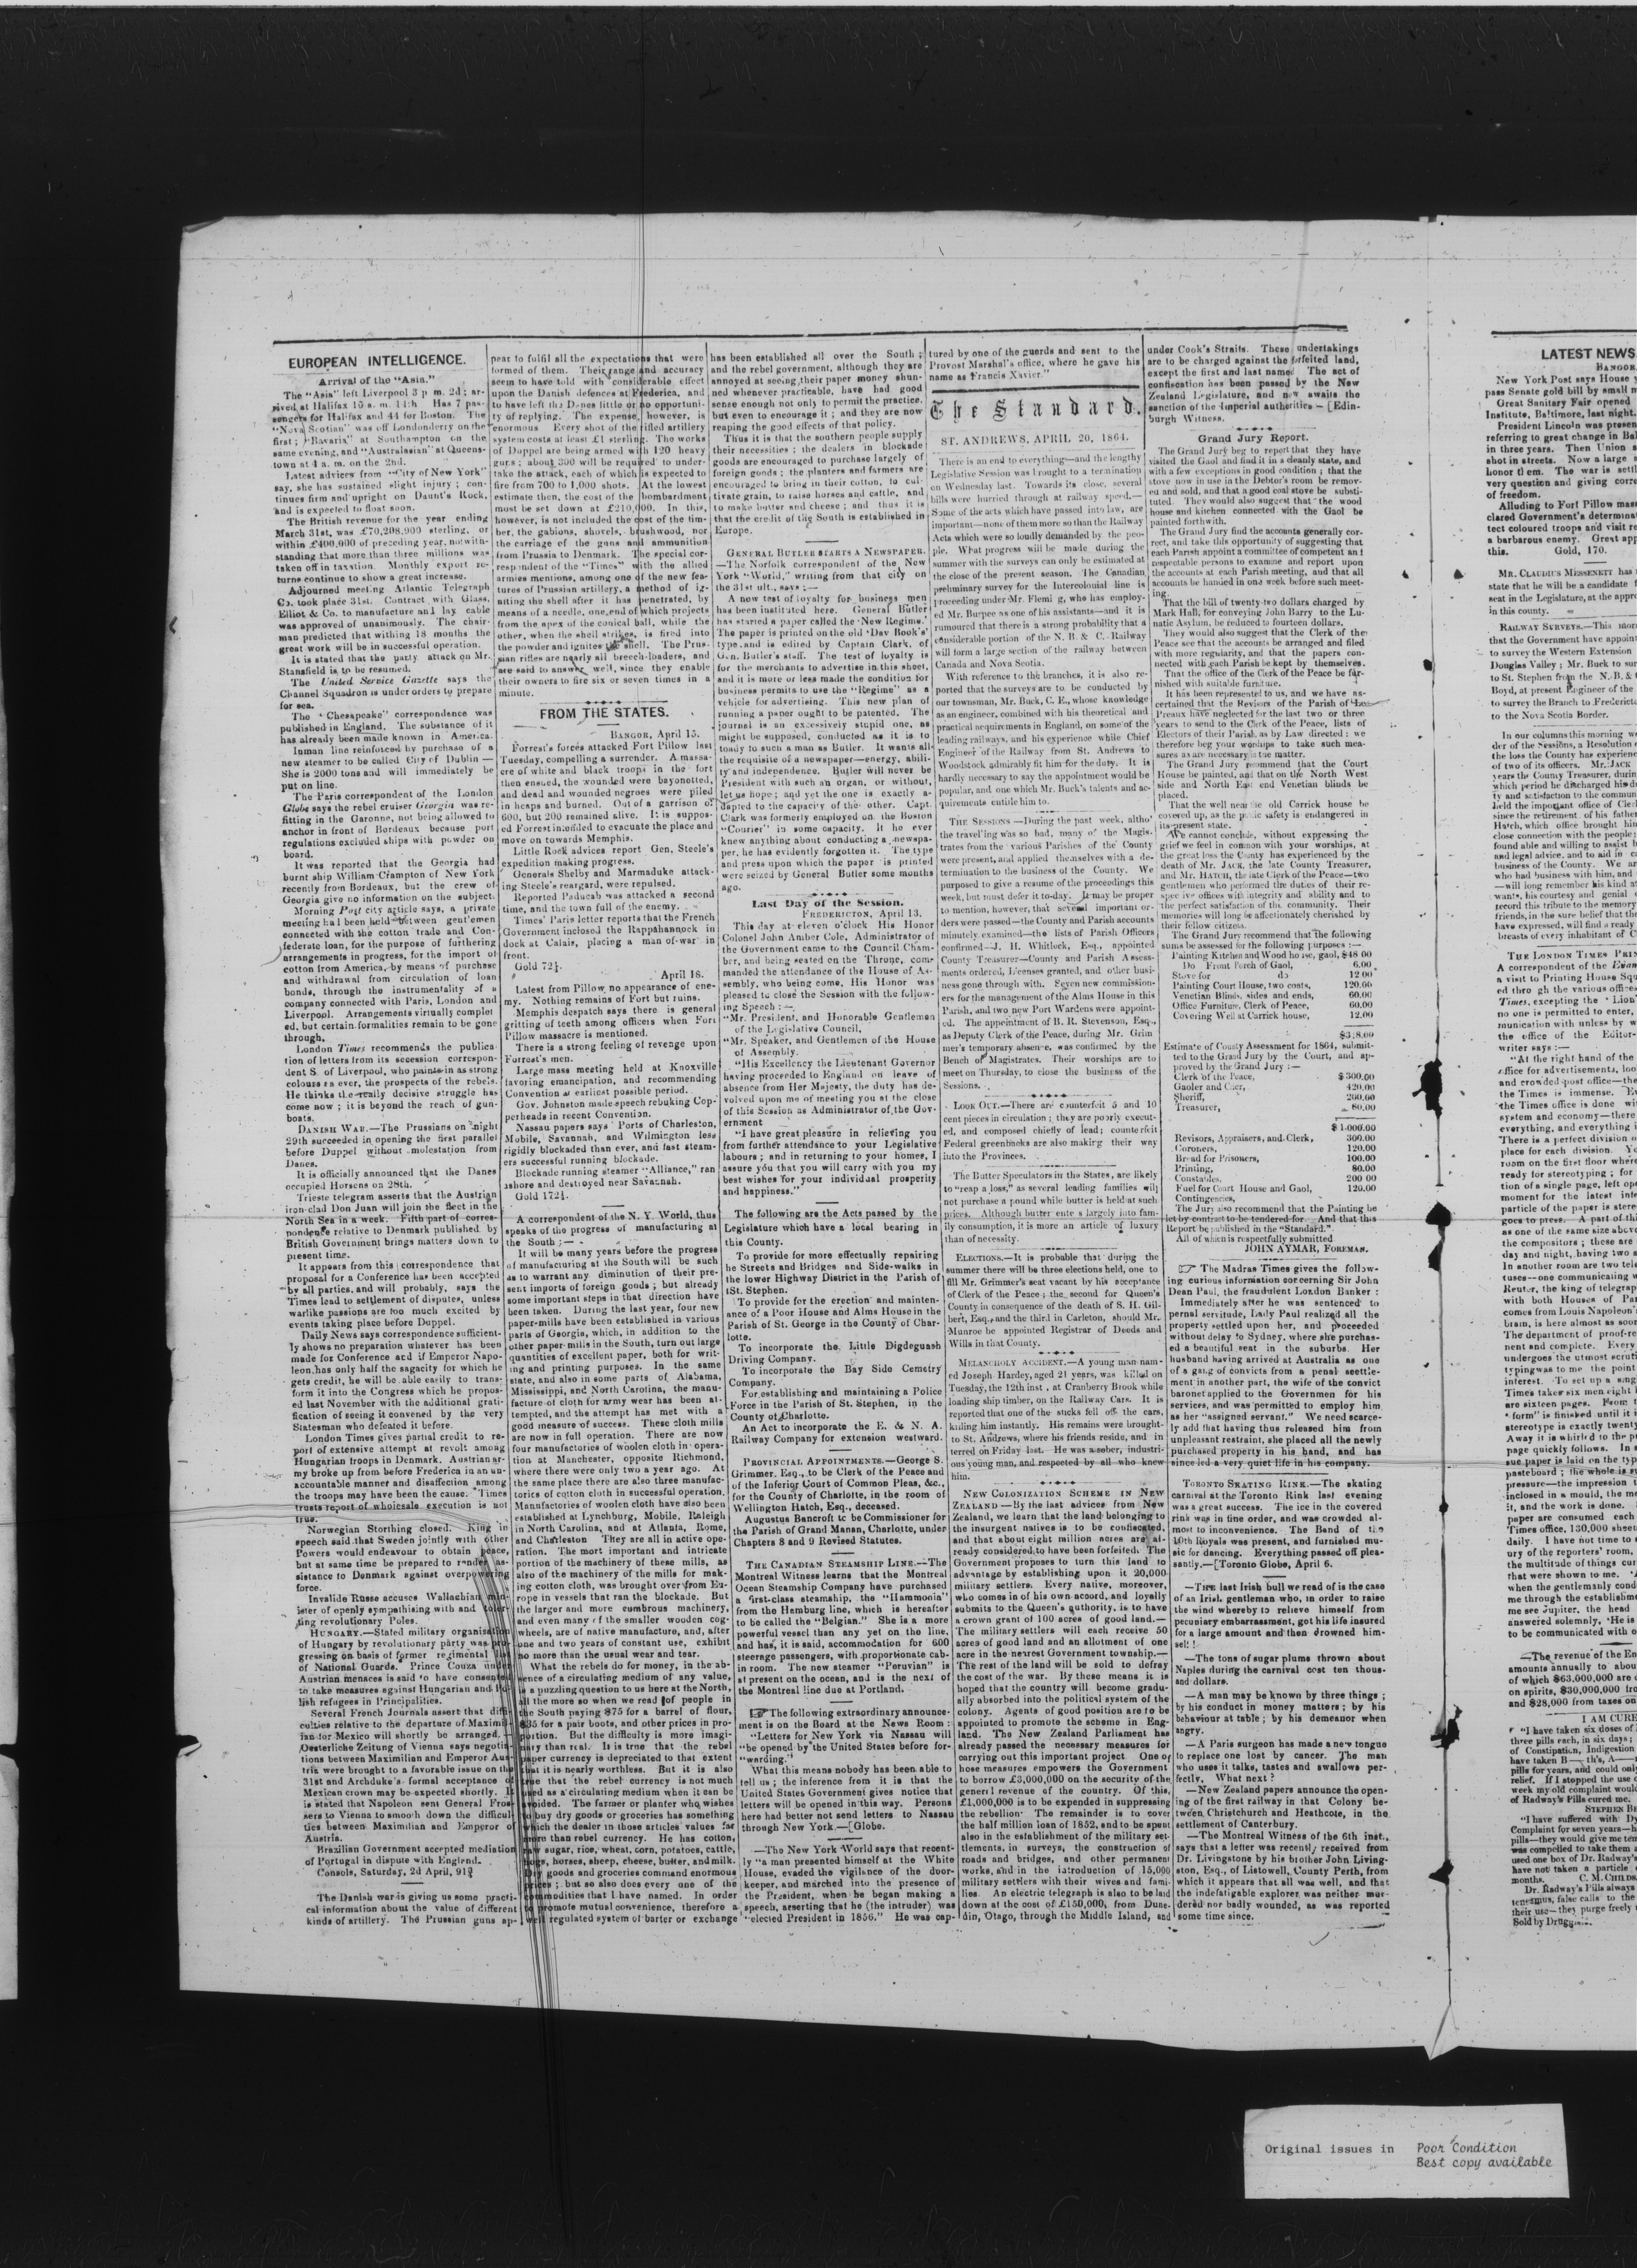 EUROPEAN INTELLIGENCE.
Arrival of the "Asia."
The "Asia" left Liverpool 3 p m. 2d; ar-
rived at Halifax 10 a. m. 14th Has 7 pas-
sengers for Halifax and 44 for Boston. The
"Nova Scotian" was off Londonderry on the
first; "Bavaria" at Southampton on the
same evening, and "Australasian" at Queens-
town at 4 a. m. on the 2nd.
Latest advices from "City of New York"
say, she has sustained slight injury; con-
tinues firm and upright on Daunt's Rock,
and is expected to float soon.
The British revenue for the year ending
March 31st, was £70,208,000 sterling, or
within £400,000 of preceding year, notwith-
standing that more than three millions was
taken off in taxation. Monthly export re-
turns continue to show a great increase.
Adjourned meeting Atlantic Telegraph
Co. took place 31st. Contract with Glass,
Elliot & Co. to manufacture and lay cable
was approved of unanimously. The chair-
man predicted that withing 18 months the
great work will be in successful operation.
It is stated that the party attack on Mr.
Stansfield is to be resumed.
The United Service Gazette says the
Channel Squadron is under orders to prepare
for sea.
The "Chesapeake" correspondence was
published in England. The substance of it
has already been made known in America.
Inman line reinforced by purchase of a
new steamer to be called City of Dublin —
She is 2000 tons and will immediately be
put on line.
The Paris correspondent of the London
Globe says the rebel cruiser Georgia was re-
fitting in the Garonne, not being allowed to
anchor in front of Bordeaux because port
regulations excluded ships with powder on
board.
It was reported that the Georgia had
burnt ship William Crampton of New York
recently from Bordeaux, but the crew of
Georgia give no information on the subject.
Morning Post city article says, a private
meeting had been held between gentlemen
connected with the cotton trade and Con-
federate loan, for the purpose of furthering
arrangements in progress, for the import of
cotton from America, by means of purchase
and withdrawal from circulation of loan
bonds, through the instrumentality of a
company connected with Paris, London and
Liverpool. Arrangements virtually complet
ed, but certain formalities remain to be gone
through.
London Times recommends the publica-
tion of letters from its secession correspon-
dent S. of Liverpool, who paints in as strong
colours as ever, the prospects of the rebels.
He thinks the really decisive struggle has
come now; it is beyond the reach of gun-
boats.
DANISH WAR.—The Prussians on night
29th succeeded in opening the first parallel
before Duppel without molestation from
Danes.
It is officially announced that the Danes
occupied Horsens on 28th.
Trieste telegram asserts that the Austrian
iron-clad Don Juan will join the fleet in the
North Sea in a week. Fifth part of corres-
pondence relative to Denmark published by
British Government brings matters down to
present time.
It appears from this correspondence that
proposal for a Conference has been accepted
by all parties, and will probably, says the
Times lead to settlement of disputes, unless
warlike passions are too much excited by
events taking place before Duppel.
Daily News says correspondence sufficient-
ly shows no preparation whatever has been
made for Conference and if Emperor Napo-
leon has only half the sagacity for which he
gets credit, he will be able easily to trans-
form it into the Congress which he propos-
ed last November with the additional grati-
fication of seeing it convened by the very
Statesman who defeated it before.
London Times gives partial credit to re-
port of extensive attempt at revolt among
Hungarian troops in Denmark. Austrian ar-
my broke up from before Frederica in an un-
accountable manner and disaffection among
the troops may have been the cause. Times
trusts report of wholesale execution is not
true.
Norwegian Storthing closed. King in
speech said that Sweden jointly with other
Powers would endeavour to obtain peace,
but at same time be prepared to render as-
sistance to Denmark against overpowering
force.
Invalide Russe accuses Wallachian min-
ister of openly sympathising with and toler-
ating revolutionary Poles.
HUNGARY.—Stated military organisation
of Hungary by revolutionary party was pro-
gressing on basis of former regimental
of National Guards. Prince Couza under
Austrian menaces is said to have consented
to take measures against Hungarian and Po-
lish refugees in Principalities.
Several French Journals assert that diffi-
culties relative to the departure of Maximil-
ian for Mexico will shortly be arranged.—
Oesterliche Zeitung of Vienna says negotia-
tions between Maximilian and Emperor Aus-
tria were brought to a favorable issue on the
31st and Archduke's formal acceptance of
Mexican crown may be expected shortly. It
is stated that Napoleon sent General Fros-
sers to Vienna to smooth down the difficul-
ties between Maximilian and Emperor of
Austria.
Brazilian Government accepted mediation
of Portugal in dispute with England.
Consols, Saturday, 2d April, 91¾
The Danish war is giving us some practi-
cal information about the value of different
kinds of artillery. The Prussian guns ap-
pear to fulfil all the expectations that were
formed of them. Their range and accuracy
seem to have told with considerable effect
upon the Danish defences at Frederica, and
to have left the Danes little or no opportuni-
ty of replying. The expense, however, is
enormous Every shot of the rifled artillery
system costs at least £1 sterling. The works
of Duppel are being armed with 120 heavy
guns; about 300 will be required to under-
take the attack, each of which is expected to
fire from 700 to 1,000 shots. At the lowest
estimate then, the cost of the bombardment
must be set down at £210,000. In this,
however, is not included the cost of the tim-
ber, the gabions, shovels, brushwood, nor
the carriage of the guns and ammunition
from Prussia to Denmark. The special cor-
respondent of the "Times" with the allied
armies mentions, among one of the new fea-
tures of Prussian artillery, a method of ig-
niting the shell after it has penetrated, by
means of a needle, one end of which projects
from the apex of the conical ball, while the
other, when the shell strikes, is fired into
the powder and ignites the shell. The Prus-
sian rifles are nearly all breech-loaders, and
are said to answer well, since they enable
their owners to fire six or seven times in a
minute.
FROM THE STATES.
BANGOR, April 15.
Forrest's forces attacked Fort Pillow last
Tuesday, compelling a surrender. A massa-
cre of white and black troops in the fort
then ensued, the wounded were bayonotted,
and dead and wounded negroes were piled
in heaps and burned. Out of a garrison of
600, but 200 remained alive. It is suppos-
ed Forrest intended to evacuate the place and
move on towards Memphis.
Little Rock advices report Gen, Steele's
expedition making progress.
Generals Shelby and Marmaduke attack-
ing Steele's reargard, were repulsed.
Reported Paducah was attacked a second
time, and the town full of the enemy.
Times' Paris letter reports that the French
Government inclosed the Rappahannock in
dock at Calais, placing a man-of-war in
front.
Gold 72¼.
April 18.
Latest from Pillow, no appearance of ene-
my. Nothing remains of Fort but ruins.
Memphis despatch says there is general
gritting of teeth among officers when Fort
Pillow massacre is mentioned.
There is a strong feeling of revenge upon
Forrost's men.
Large mass meeting held at Knoxville
favoring emancipation, and recommending
Convention at earliest possible period.
Gov. Johnston made speech rebuking Cop-
perheads in recent Convention.
Nassau papers says Ports of Charleston,
Mobile, Savannah, and Wilmington less
rigidly blockaded than ever, and fast steam-
ers successful running blockade.
Blockade running steamer "Alliance," ran
ashore and destroyed near Savannah.
Gold 172¼.
A correspondent of the N. Y. World, thus
speaks of the progress of manufacturing at
the South;—
It will be many years before the progress
of manufacturing at the South will be such
as to warrant any diminution of their pre-
sent imports of foreign goods; but already
some important steps in that direction have
been taken. During the last year, four new
paper-mills have been established in various
parts of Georgia, which, in addition to the
other paper-mills in the South, turn out large
quantities of excellent paper, both for writ-
ing and printing purposes. In the same
state, and also in some parts of Alabama,
Mississippi, and North Carolina, the manu-
facture of cloth for army wear has been at-
tempted, and the attempt has met with a
good measure of success. These cloth mills
are now in full operation. There are now
four manufactories of woolen cloth in opera-
tion at Manchester, opposite Richmond,
where there were only two a year ago. At
the same place there are also three manufac-
tories of cotton cloth in successful operation.
Manufactories of woolen cloth have also been
established at Lynchburg, Mobile, Raleigh
in North Carolina, and at Atlanta, Rome,
and Charleston They are all in active ope-
ration. The most important and intricate
portion of the machinery of these mills, as
also of the machinery of the mills for mak-
ing cotton cloth, was brought over from Eu-
rope in vessels that ran the blockade. But
the larger and more cumbrous machinery,
and even many of the smaller wooden cog-
wheels, are of native manufacture, and, after
one and two years of constant use, exhibit
no more than the usual wear and tear.
What the rebels do for money, in the ab-
sence of a circulating medium of any value,
is a puzzling question to us here at the North,
all the more so when we read of people in
the South paying $75 for a barrel of flour,
$35 for a pair boots, and other prices in pro-
portion. But the difficulty is more imagi-
nary than real. It is true that the rebel
paper currency is depreciated to that extent
that it is nearly worthless. But it is also
true that the rebel currency is not much
used as a circulating medium when it can be
avoided. The farmer or planter who wishes
to buy dry goods or groceries has something
which the dealer in those articles values far
more than rebel currency. He has cotton,
raw sugar, rice, wheat, corn, potatoes, cattle,
hogs, horses, sheep, cheese, butter, and milk.
Dry goods and groceries command enormous
prices; but so also does every one of the
commodities that I have named. In order
to promote mutual convenience, therefore a
well regulated system of barter or exchange
has been established all over the South;
and the rebel government, although they are
annoyed at seeing their paper money shun-
ned whenever practicable, have had good
sense enough not only to permit the practice,
but even to encourage it; and they are now
reaping the good effects of that policy.
Thus it is that the southern people supply
their necessities; the dealers in blockade
goods are encouraged to purchase largely of
foreign goods; the planters and farmers are
encouraged to bring in their cotton, to cul-
tivate grain, to raise horses and cattle, and
to make butter and cheese; and thus it is
that the credit of the South is established in
Europe.
GENERAL BUTLER STARTS A NEWSPAPER.
—The Norfolk correspondent of the New
York "World," writing from that city on
the 31st ult., says;—
A new test of loyalty for business men
has been instituted here. General Butler
has started a paper called the 'New Regime.'
The paper is printed on the old 'Day Book's'
type and is edited by Captain Clark, of
Gen. Butler's staff. The test of loyalty is
for the merchants to advertise in this sheet,
and it is more or less made the condition for
business permits to use the "Regime" as a
vehicle for advertising. This new plan of
running a paper ought to be patented. The
journal is an excessively stupid one, as
might be supposed, conducted as it is to
toady to such a man as Butler. It wants all
the requisite of a newspaper—energy, abili-
ty and independence. Butler will never be
President with such an organ, or without,
let us hope; and yet the one is exactly a-
dapted to the capacity of the other. Capt.
Clark was formerly employed on the Boston
"Courier" in some capacity. If he ever
knew anything about conducting a newspa-
per, he has evidently forgotten it. The type
and press upon which the paper is printed
were seized by General Butler some months
ago.
Last Day of the Session.
FREDERICTON, April 13.
This day at eleven o'clock His Honor
Colonel John Amber Cole, Administrator of
the Government came to the Council Cham-
ber, and being seated on the Throne, com-
manded the attendance of the House of As-
sembly, who being come, His Honor was
pleased to close the Session with the follow-
ing Speech:—
"Mr. President, and Honorable Gentlemen
of the Legislative Council,
"Mr. Speaker, and Gentlemen of the House
of Assembly.
"His Excellency the Lieutenant Governor
having proceeded to England on leave of
absence from Her Majesty, the duty has de-
volved upon me of meeting you at the close
of this Session as Administrator of the Gov-
ernment
"I have great pleasure in relieving you
from further attendance to your Legislative
labours; and in returning to your homes, I
assure you that you will carry with you my
best wishes for your individual prosperity
and happiness."
The following are the Acts passed by the
Legislature which have a local bearing in
this County.
To provide for more effectually repairing
he Streets and Bridges and Side-walks in
the lower Highway District in the Parish of
tSt. Stephen.
To provide for the erection and mainten-
ance of a Poor House and Alms House in the
Parish of St. George in the County of Char-
lotte.
To incorporate the Little Digdeguash
Driving Company.
To incorporate the Bay Side Cemetry
Company.
For establishing and maintaining a Police
Force in the Parish of St. Stephen, in the
County of Charlotte.
An Act to incorporate the E. & N. A.
Railway Company for extension westward.
PROVINCIAL APPOINTMENTS.—George S.
Grimmer, Esq., to be Clerk of the Peace and
of the Inferior Court of Common Pleas, &c.,
for the County of Charlotte, in the room of
Wellington Hatch, Esq., deceased.
Augustus Bancroft to be Commissioner for
the Parish of Grand Manan, Charlotte, under
Chapters 8 and 9 Revised Statutes.
THE CANADIAN STEAMSHIP LINE.—The
Montreal Witness learns that the Montreal
Ocean Steamship Company have purchased
a first-class steamship, the "Hammonia"
from the Hamburg line, which is hereafter
to be called the "Belgian." She is a more
powerful vessel than any yet on the line,
and has, it is said, accommodation for 600
steerage passengers, with proportionate cab-
in room. The new steamer "Peruvian" is
at present on the ocean, and is the next of
the Montreal line due at Portland.
☞ The following extraordinary announce-
ment is on the Board at the News Room:
"Letters for New York via Nassau will
"be opened by the United States before for-
"warding."
What this means nobody has been able to
tell us; the inference from it is that the
United States Government gives notice that
letters will be opened in this way. Persons
here had better not send letters to Nassau
through New York.—[Globe.
—The New York World says that recent-
ly "a man presented himself at the White
House, evaded the vigilance of the door-
keeper, and marched into the presence of
the President, when he began making a
speech, asserting that he (the intruder) was
"elected President in 1856." He was cap-
tured by one of the guards and sent to the
Provost Marshal's office, where he gave his
name as Francis Xavier."
The Standard.
ST. ANDREWS, APRIL 20, 1864.
There is an end to everything—and the lengthy
Legislative Session was brought to a termination
on Wednesday last. Towards its close, several
bills were hurried through at railway speed.—
Some of the acts which have passed into law, are
important—none of them more so than the Railway
Acts which were so loudly demanded by the peo-
ple. What progress will be made during the
summer with the surveys can only be estimated at
the close of the present season. The Canadian
preliminary survey for the Intercolonial line is
proceeding under Mr. Flemi g, who has employ-
ed Mr. Burpee as one of his assistants—and it is
rumoured that there is a strong probability that a
considerable portion of the N. B. & C. Railway
will form a large section of the railway between
Canada and Nova Scotia.
With reference to the branches, it is also re-
ported that the surveys are to be conducted by
our townsman, Mr. Buck, C. E., whose knowledge
as an engineer, combined with his theoretical and
practical acquirements in England, on some of the
leading railways, and his experience while Chief
Engineer of the Railway from St. Andrews to
Woodstock admirably fit him for the duty. It is
hardly necessary to say the appointment would be
popular, and one which Mr. Buck's talents and ac-
quirements entitle him to.
THE SESSIONS —During the past week, altho'
the traveling was so bad, many of the Magis-
trates from the various Parishes of the County
were present, and applied themselves with a de-
termination to the business of the County. We
purposed to give a resume of the proceedings this
week, but must defer it to-day. It may be proper
to mention, however, that several important or-
ders were passed—the County and Parish accounts
minutely examined—the lists of Parish Officers
confirmed—J. H. Whitlock, Esq., appointed
County Treasurer—County and Parish Assess-
ments ordered, Licenses granted, and other busi-
ness gone through with. Seven new commission-
ers for the management of the Alms House in this
Parish, and two new Port Wardens were appoint-
ed. The appointment of B. R. Stevenson, Esq.,
as Deputy Clerk of the Peace, during Mr. Grim
mer's temporary absence, was confirmed by the
Bench of Magistrates. Their worships are to
meet on Thursday, to close the business of the
Sessions.
LOOK OUT.—There are counterfeit 5 and 10
cent pieces in circulation; they are poorly execut-
ed, and composed chiefly of lead; counterfeit
Federal greenbacks are also making their way
into the Provinces.
The Butter Speculators in the States, are likely
to "reap a loss," as several leading families will
not purchase a pound while butter is held at such
prices. Although butter ente s largely into fam-
ily consumption, it is more an article of luxury
than of necessity.
ELECTIONS.—It is probable that during the
summer there will be three elections held, one to
fill Mr. Grimmer's seat vacant by his acceptance
of Clerk of the Peace; the second for Queen's
County in consequence of the death of S. H. Gil-
bert, Esq., and the third in Carleton, should Mr.
Munroe be appointed Registrar of Deeds and
Wills in that County.
MELANCHOLY ACCIDENT.—A young man nam-
ed Joseph Hardey, aged 21 years, was killed on
Tuesday, the 12th inst , at Cranberry Brook while
loading ship timber, on the Railway Cars. It is
reported that one of the sticks fell off the cars,
killing him instantly. His remains were brought
to St. Andrews, where his friends reside, and in
terred on Friday last. He was a sober, industri-
ous young man, and respected by all who knew
him.
NEW COLONIZATION SCHEME IN NEW
ZEALAND —By the last advices from New
Zealand, we learn that the land belonging to
the insurgent natives is to be confiscated,
and that about eight million acres are al-
ready considered to have been forfeited. The
Government proposes to turn this land to
advantage by establishing upon it 20,000
military settlers. Every native, moreover,
who comes in of his own accord, and loyally
submits to the Queen's authority, is to have
a crown grant of 100 acres of good land.—
The military settlers will each receive 50
acres of good land and an allotment of one
acre in the nearest Government township.—
The rest of the land will be sold to defray
the cost of the war. By these means it is
hoped that the country will become gradu-
ally absorbed into the political system of the
colony. Agents of good position are to be
appointed to promote the scheme in Eng-
land. The New Zealand Parliament has
already passed the necessary measures for
carrying out this important project One of
hose measures empowers the Government
to borrow £3,000,000 on the security of the
generl revenue of the country. Of this,
£1,000,000 is to be expended in suppressing
the rebellion. The remainder is to cover
the half million loan of 1852, and to be spent
also in the establishment of the military set-
tlements, in surveys, the construction of
roads and bridges, and other permanent
works, and in the introduction of 15,000
military settlers with their wives and fami-
lies. An electric telegraph is also to be laid
down at the cost of £150,000, from Dune-
din, Otago, through the Middle Island, and
under Cook's Straits. These undertakings
are to be charged against the forfeited land,
except the first and last named The act of
confiscation has been passed by the New
Zealand Legislature, and now awaits the
sanction of the Imperial authorities — [Edin-
burgh Witness.
Grand Jury Report.
The Grand Jury beg to report that they have
visited the Gaol and find it in a cleanly state, and
with a few exceptions in good condition; that the
stove now in use in the Debtor's room be remov-
ed and sold, and that a good coal stove be substi-
tuted. They would also suggest that the wood
house and kitchen connected with the Gaol be
painted forthwith.
The Grand Jury find the accounts generally cor-
rect, and take this opportunity of suggesting that
each Parish appoint a committee of competent and
respectable persons to examine and report upon
the accounts at each Parish meeting, and that all
accounts be handed in one week before such meet-
ing.
That the bill of twenty-two dollars charged by
Mark Hall, for conveying John Barry to the Lu-
natic Asylum, be reduced to fourteen dollars.
They would also suggest that the Clerk of the
Peace see that the accounts be arranged and filed
with more regularity, and that the papers con-
nected with each Parish be kept by themselves.
That the office of the Clerk of the Peace be fur-
nished with suitable furniture.
It has been represented to us, and we have as-
certained that the Revisors of the Parish of
Preaux have neglected for the last two or three
years to send to the Clerk of the Peace, lists of
Electors of their Parish, as by Law directed: we
therefore beg your worships to take such mea-
sures as are necessary in the matter.
The Grand Jury recommend that the Court
House be painted, and that on the North West
side and North East end Venetian blinds be
placed.
That the well near the old Carrick house be
covered up, as the public safety is endangered in
its present state.
We cannot conclude, without expressing the
grief we feel in common with your worships, at
the great loss the County has experienced by the
death of Mr. JACK, the late County Treasurer,
and Mr. HATCH, the late Clerk of the Peace—two
gentlemen who performed the duties of their re-
spective offices with integrity and ability and to
the perfect satisfaction of the community. Their
memories will long be affectionately cherished by
their fellow citizens.
The Grand Jury recommend that the following
sums be assessed for the following purposes:—
Painting Kitchen and Wood house, gaol, $48 00
Do Front Porch of Gaol, 6.00
Stove for do 12 00
Painting Court House, two coats, 120.00
Venetian Blinds, sides and ends, 60.00
Office Furniture, Clerk of Peace, 60.00
Covering Well at Carrick house, 12.00
Estimate of County Assessment for 1864, submit-
ted to the Grand Jury by the Court, and ap-
proved by the Grand Jury:—
Clerk of the Peace, $300.00
Gaoler and Crier, 420.00
Sheriff, 200.00
Treasurer, 80.00
$1.000.00
Revisors, Appraisers, and Clerk, 300.00
Coroners, 120.00
Bread for Prisoners, 100.00
Printing, 80.00
Constables, 200 00
Fuel for Court House and Gaol, 120.00
Contingencies,
The Jury also recommend that the Painting be
let by contract to be tendered for And that this
Report be published in the "Standard."
All of which is respectfully submitted
JOHN AYMAR, FOREMAN.
☞ The Madras Times gives the follow-
ing curious information concerning Sir John
Dean Paul, the fraudulent London Banker:
Immediately after he was sentenced to
pernal servitude, Lady Paul realized all the
property settled upon her, and proceeded
without delay to Sydney, where she purchas-
ed a beautiful seat in the suburbs. Her
husband having arrived at Australia as one
of a gang of convicts from a penal seettle-
ment in another part, the wife of the convict
baronet applied to the Governmen for his
services, and was permitted to employ him
as her "assigned servant." We need scarce-
ly add that having thus released him from
unpleasant restraint, she placed all the newly
purchased property in his hand, and has
since led a very quiet life in his company.
TORONTO SKATING RINK.—The skating
carnival at the Toronto Rink last evening
was a great success. The ice in the covered
rink was in fine order, and was crowded al-
most to inconvenience. The Band of the
16th Royals was present, and furnished mu-
sic for dancing. Everything passed off plea-
santly.—[Toronto Globe, April 6.
—THE last Irish bull we read of is the case
of an Irish gentleman who, in order to raise
the wind whereby to relieve himself from
pecuniary embarrassment, got his life insured
for a large amount and then drowned him-
self!
—The tons of sugar plums thrown about
Naples during the carnival cost ten thous-
and dollars.
—A man may be known by three things;
by his conduct in money matters; by his
behaviour at table; by his demeanor when
angry.
—A Paris surgeon has made a new tongue
to replace one lost by cancer. The man
who uses it talks, tastes and swallows per-
fectly, What next?
—New Zealand papers announce the open-
ing of the first railway in that Colony be-
tween Christchurch and Heathcote, in the
settlement of Canterbury.
—The Montreal Witness of the 6th inst.,
says that a letter was recently received from
Dr. Livingstone by his brother John Living-
ston, Esq., of Listowell, County Perth, from
which it appears that all was well, and that
the indefatigable explorer was neither mur-
dered nor badly wounded, as was reported
some time since.
LATEST NEWS
BANGOR
New York Post says House
pass Senate gold bill by small
Great Sanitary Fair opened
Institute, Baltimore, last night.
President Lincoln was presen
referring to great change in Bal
in three years. Then Union s
shot in streets. Now a large
honor them. The war is settl
very question and giving corre
of freedom.
Alluding to Fort Pillow mass
clared Government's determinat
tect coloured troops and visit re
a barbarous enemy. Great app
this. Gold, 170.
MR. CLAUDIUS MESSENETT has
state that he will be a candidate
seat in the Legislature, at the appro
in this county.
RAILWAY SURVEYS.—This mor
that the Government have appoint
to survey the Western Extension
Douglas Valley; Mr. Buck to sur
to St. Stephen from the N. B. &
Boyd, at present Engineer of the
to survey the Branch to Fredericto
to the Nova Scotia Border.
In our columns this morning we
der of the Sessions, a Resolution
the loss the County has experience
of two of its officers. Mr. JACK
years the County Treasurer, durin
which period he discharged his du
ty and satisfaction to the commun
held the important office of Cler
since the retirement of his father
Hatch, which office brought him
close connection with the people;
found able and willing to assist
and legal advice, and to aid in
business of the County. We ar
who had business with him, and
—will long remember his kind at
wants, his courtesy and genial
record this tribute to the memory
friends, in the sure belief that the
have expressed, will find a ready
breasts of every inhabitant of C
THE LONDON TIMES PRIN
A correspondent of the Exam
a visit to Printing House Squ
ed thro gh the various offices
Times, excepting the 'Lion'
no one is permitted to enter,
munication with unless by w
the office of the Editor-
writer says:—
"At the right hand of the
office for advertisements, loo
and crowded post office—the
the Times is immense. Ev
the Times office is done wit
system and economy—there
everything, and everything i
There is a perfect division o
place for each division. Yo
room on the first floor where
ready for stereotyping; for
tion of a single page, left ope
moment for the latest inte
particle of the paper is stere
goes to press. A part of thi
as one of the same size above
the compositors; these are
day and night, having two s
In another room are two tele
tuses--one communicating w
Reuter, the king of telegrap
with both Houses of Par
comes from Louis Napoleon'
brain, is here almost as soon
The department of proof-re
nent and complete. Every
undergoes the utmost scruti
typing was to me the point
interest. To set up a sing
Times takes six men eight
are sixteen pages. From t
"form" is finished until it i
stereotype is exactly twenty
Away it is whirled to the p
page quickly follows. In
sue paper is laid on the typ
pasteboard; the whole is su
pressure—the impression t
inclosed in a mould, the me
it, and the work is done.
paper are consumed each
Times office. 130,000 sheet
daily. I have not time to
ury of the reporters' room,
the multitude of things cur
that were shown to me.
when the gentlemanly cond
me through the establishme
me see Jupiter, the head
answered solemnly, 'He is
to be communicated with o
—The revenue of the En
amounts annually to abou
of which $63,000,000 are
on spirits, $30,000,000 fro
and $28,000 from taxes on
I AM CURE
"I have taken six doses of
three pills each, in six days;
of Constipation, Indigestion
have taken B——th's, A——
pills for years, and could only
relief. If I stopped the use
week my old complaint would
of Radway's Pills cured me.
STEPHEN BE
"I have suffered with Dy
Complaint for seven years—h
pills—they would give me tem
was compelled to take them a
used one box of Dr. Radway's
have not taken a particle
months. C. M. CHILDS
Dr. Radway's Pills always
tenesmus, false calls to the
their use—they purge freely
Sold by Druggists.
Original issues in Poor Condition
Best copy available